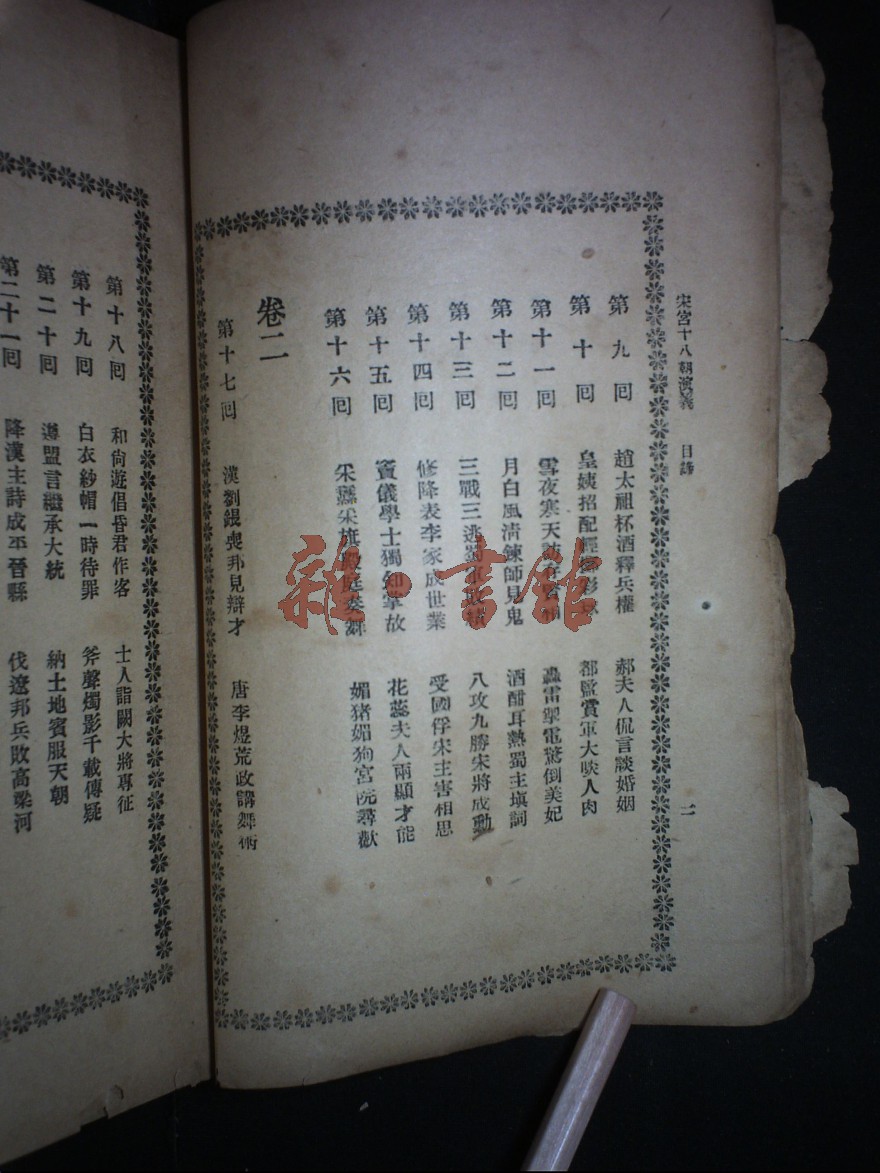 宋宮十八朝演義 目錄 二
第九回 趙太祖杯酒釋兵權 郝夫人侃言談婚姻
第十回 皇姨招配 都監賞軍大啖人肉
第十一回 雪夜寒天訪 轟雷掣電驚倒美妃
第十二回 月白風清鍊師見鬼 酒酣耳熱蜀主填詞
第十三回 三戰三逃蜀 八攻九勝宋將成勳
第十四回 修降表李家成世業 受國俘宋主害相思
第十五回 竇儀學士獨知掌故 花蕊夫人兩顯才能
第十六回 采 媚猪媚狗宮院尋歡
卷二
第十七回 漢劉鋹喪邦見辯才 唐李煜荒政講舞術
第十八回 和尙遊倡昏君作客 士人詣闕大將專征
第十九回 白衣紗帽一時待罪 斧聲燭影千載傳疑
第二十回 遵盟言繼承大統 納土地賓服天朝
第二十一回 降漢主詩成平晉縣 伐遼邦兵敗高梁河
雜·書館